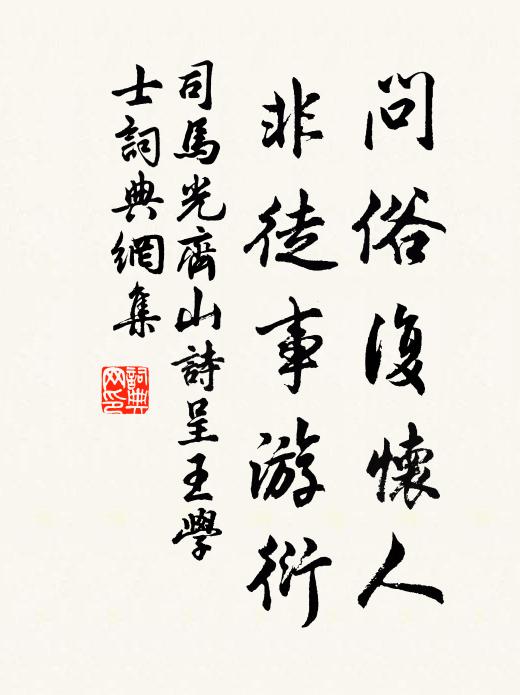 問俗復懷人
非徒事游衍
司馬光齊山詩呈王學
士詞典網集
詞典
网印